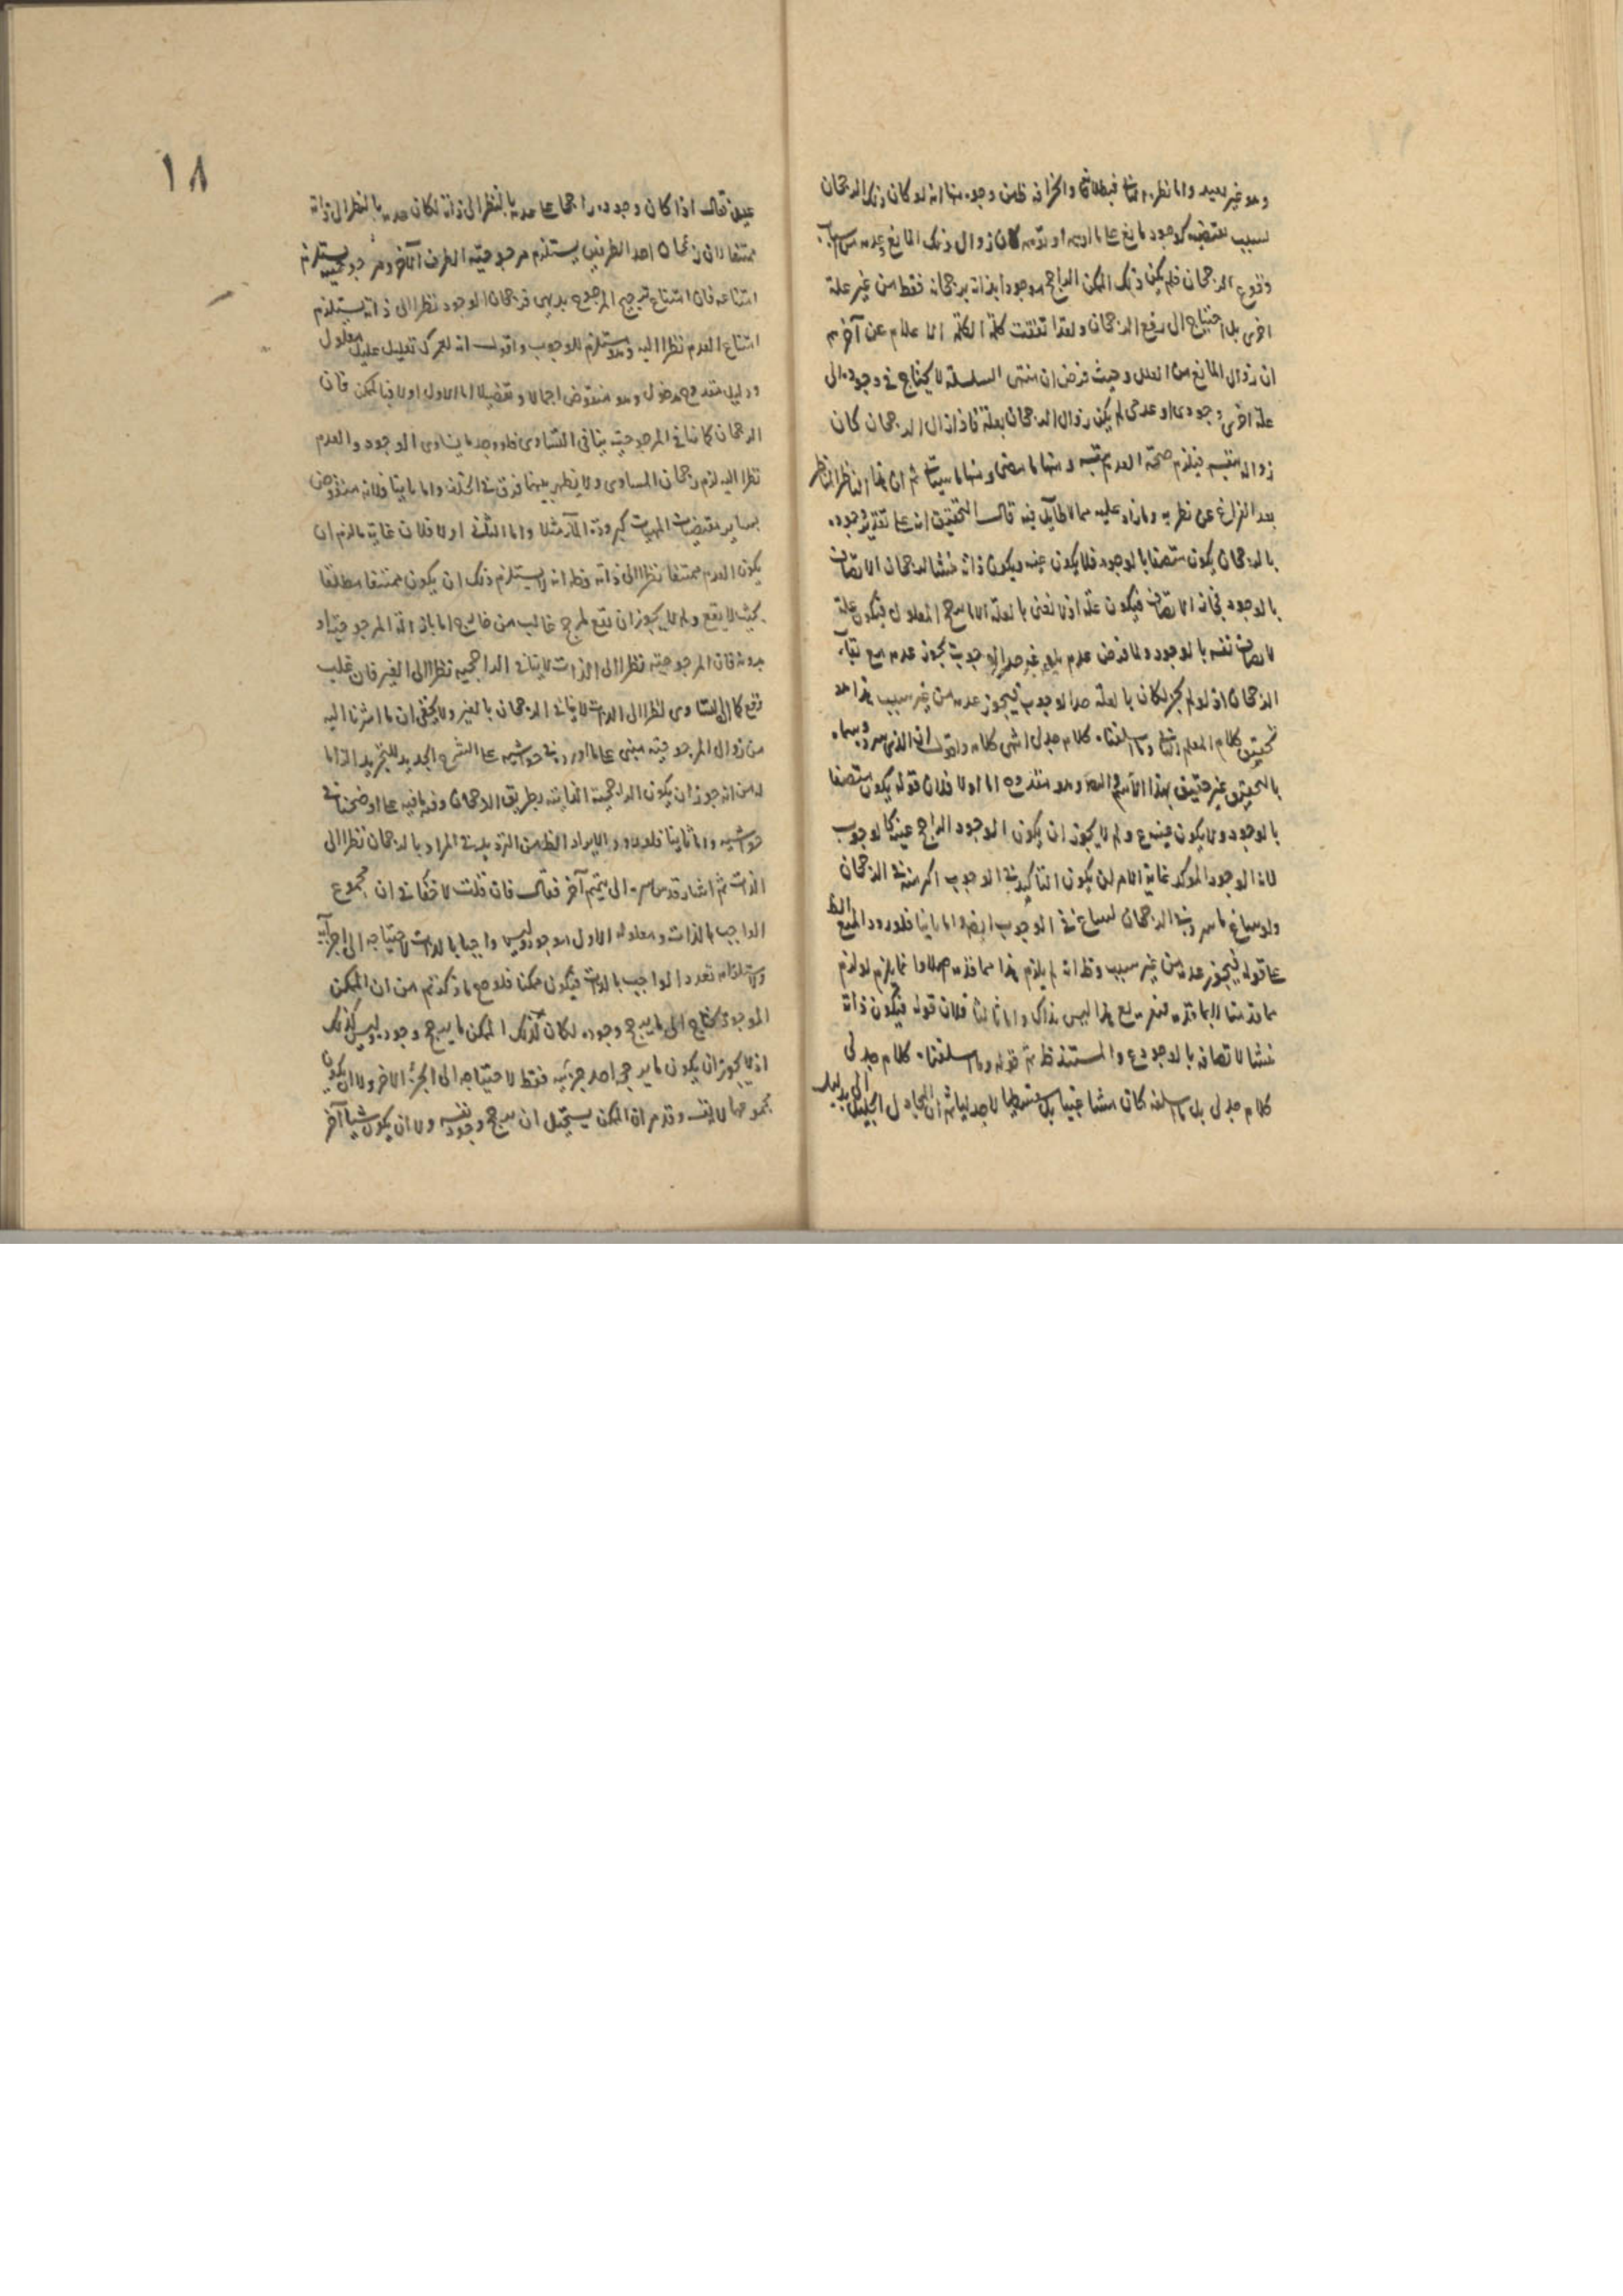 وهو غير بعيد واما نظره فبطلانه وانحرافه ظاهر من وجوه منها انه لو كان ذلك الرجحان
لسبب يقتضيه كوجود مانع على ما ادعيه او توهمه كان زوال ذلك المانع وعدمه من اسباب
وقوع الرجحان فلم يكن ذلك الممكن الراجح موجودا بذاته برجحانه فقط من غير علة
اخرى بل احتياج الى رفع الرجحان ولقد اتفقت كلمة الكلمة الاعلام عن آخرهم
ان زوال المانع من العلل وحيث فرض ان منتهى السلسلة لا يحتاج في وجوده الى
علة اخرى وجودى او عدمى لم يكن زوال الرجحان بعلة فاذا زال الرجحان كان
زواله بنفسه فيلزم صحة العدم بنفسه ومنها ما مضى ومنها ما سيأتى ثم ان هذا الناظر المناظر
بعد الفراغ عن نظره وما زاد عليه مما لا طائل فيه قال التحقيق انه على تقدير وجوده
بالرجحان يكون متصفا بالوجود فلا يكون عينه ويكون ذاته منشأ لرجحان الاتصاف
بالوجود فيكون علة اذ لا نعنى بالعلة الا ما يرجح المعلول فيكون علة
لاتصاف نفسه بالوجود ولما فرض عدم بلوغه حد الوجوب يجوز عدمه مع بقاء
الرجحان اذ لو لم يجز لكان بالعلة حد الوجوب فيجوز عدمه من غير سبب هذا هو
تحقيق كلام المعلم الثانى وما اسلفناه كلام جدلى انتهى كلامه واقول ان الذى سرده وسماه
بالتحقيق غير حقيق بهذا الاسم وهو مقدوح اما اولا فلان قوله يكون متصفا
بالوجود ولا يكون عينه ع ولم لا يجوز ان يكون الوجود الراجح عينه كالوجوب
لانه الوجود المؤكد غاية الامر ان يكون التأكيد في الوجوب اكثر منه في الرجحان
ولو ساغ ما سرده في الرجحان لساغ في الوجوب ايضا واما ثانيا فلورود المنع الظ
على قوله فيجوز عدمه من غير سبب وظ انه لم يلزم هذا مما قدمه اصلا وانما يلزم لو لزم
مما قدمنا لا بما قدمه فتفريع هذا ليس بذاك واما ثالثا فلان قوله فيكون ذاته
منشأ لاتصافه بالوجود ع والمستند ظ ثم قوله وما اسلفناه كلام جدلى
كلام جدلى بل ما اسلفه كان مشاغبيا بل سفسطيا لا جدليا ثم ان المجادل الجليل الى بدليل
١٨
عليه فقال اذا كان وجوده راجحا على عدمه بالنظر الى ذاته لكان عدمه بالنظر الى ذاته
ممتنعا لان رجحان احد الطرفين يستلزم مرجوحية الطرف الآخر ومرجوحيته يستلزم
امتناعه فان امتناع ترجيح المرجوح بديهى فرجحان الوجود نظرا الى ذاته يستلزم
امتناع العدم نظرا اليه وهو مستلزم للوجوب واقول انه لعمرك تعليل عليل معلول
ودليل مقدوح مدخول وهو منقوض اجمالا وتفصيلا اما الاول اولا فبالممكن فان
الرجحان كما ينافى المرجوحية ينافى التساوى فلو وجد ما يساوى الوجود والعدم
نظرا اليه لزم رجحان المساوى ولا يظهر بينهما فرق في الخلف واما ثانيا فلانه منقوض
بساير مقتضيات المهيات كبرودة الماء مثلا واما الثانى اولا فلان غاية ما لزم ان
يكون العدم ممتنعا نظرا الى ذاته وظ انه لا يستلزم ذلك ان يكون ممتنعا مطلقا
بحيث لا يقع ولم لا يجوز ان يقع لمرجح غالب من خارج اما بازالة المرجوحية او
بدونه فان المرجوحية نظرا الى الذات لا ينافى الراجحية نظرا الى الغير فان غلب
وقع كما ان التساوى نظرا الى الذات لا ينافى الرجحان بالغير ولا يخفى ان ما اشرنا اليه
من زوال المرجوحية مبنى على ما اورده في حواشيه على الشرح الجديد للتجريد الزاما
له من انه جوز ان يكون الراجحية الذاتية بطريق الرجحان وفيه ما فيه على ما اوضحناه في
حواشيه واما ثانيا فلورود الايراد الظ من الترديد في المراد بالرجحان نظرا الى
الذات ثم اشار قدس سره الى تتميم آخر فقال فان قلت لا خفاء في ان مجموع
الواجب بالذات ومعلوله الاول موجود وليس واجبا بالذات لاحتياجه الى اجزآئه
ولاستلزامه تعدد الواجب بالذات فيكون ممكنا فلو صح ما ذكرتم من ان الممكن
الموجود يحتاج الى ما يرجح وجوده لكان لذلك الممكن ما يرجح وجوده وليس كذلك
اذ لا يجوز ان يكون ما يرجحه احد جزئيه فقط لاحتياجه الى الجزء الاخر ولا ان يكون
مجموعهما لانه نفسه وقد مر ان الممكن يستحيل ان يرجح وجود نفسه ولا ان يكون شيئا آخر